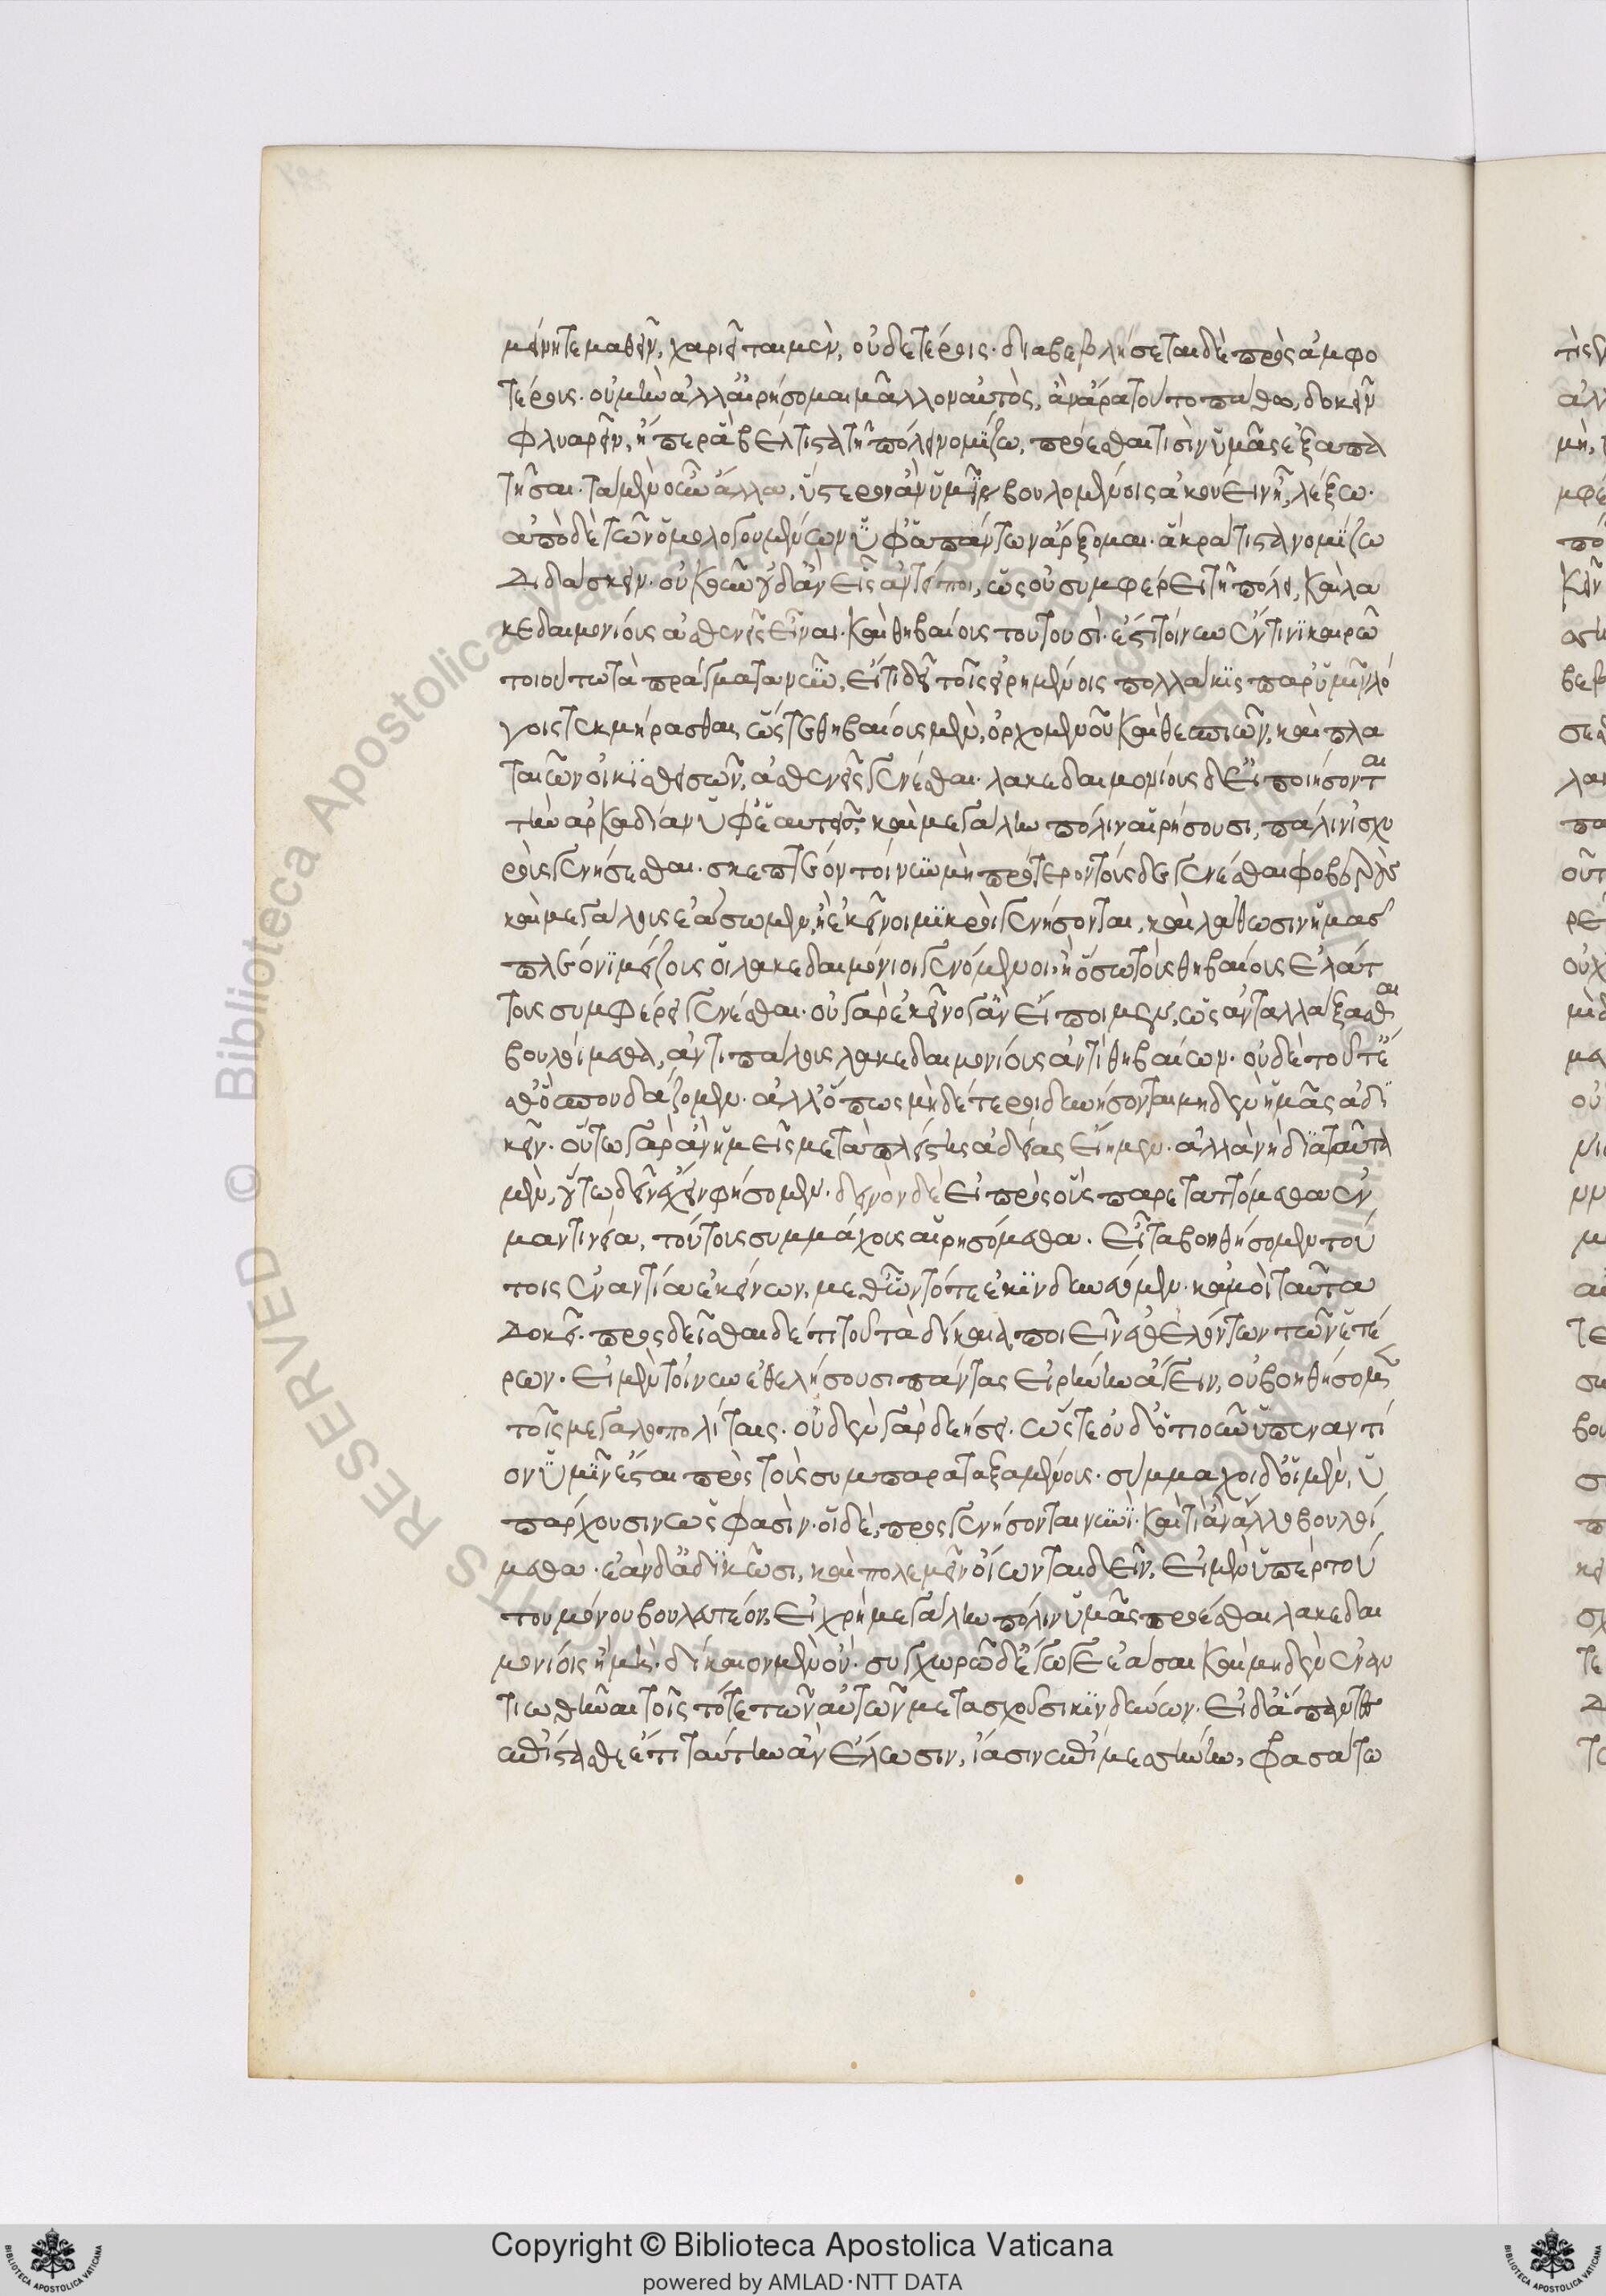 μένητε μαθεῖν, χαριεῖται μὲν, οὐδετέροις· διαβεβλήσεται δὲ πρὸς ἀμφο
τέροις. οὐ μὴν ἀλλ' αἱρήσομαι μᾶλλον αὐτὸς, ἂν ἄρα τοῦτο πάθω, δοκεῖν
φλυαρεῖν, ἢ παρ' ἃ βέλτιστα τῇ πόλει νομίζω, προέσθαι τισὶν ὑμᾶς ἐξαπα
τῆσαι. τὰ μὲν οὖν ἄλλα, ὕστερον ἂν ὑμῖν βουλομένοις ἀκούειν ᾖ, λέξω·
ἀπὸ δὲ τῶν ὁμολογουμένων ὑφ' ἁπάντων ἄρξομαι. ἃ κράτιστα νομίζω
διδάσκειν. οὐκοῦν οὐδ' ἂν εἷς ἀντείποι, ὡς οὐ συμφέρει τῇ πόλει, καὶ λα
κεδαιμονίους ἀσθενεῖς εἶναι. καὶ θηβαίους τουτουσί. ἔστι τοίνυν ἔν τινι καιρῷ
τοιούτῳ τὰ πράγματα νῦν, εἴ τι δεῖ τοῖς εἰρημένοις πολλάκις παρ' ὑμῖν λό
γοις τεκμήρασθαι, ὥστε θηβαίους μὲν, ὀρχομενοῦ καὶ θεσπιῶν, καὶ πλα
ταιῶν οἰκισθεισῶν, ἀσθενεῖς γενέσθαι. λακεδαιμονίους δ' εἰ ποιήσονται
τὴν ἀρκαδίαν ὑφ' ἑαυτοῖς, καὶ μεγάλην πόλιν αἱρήσουσι, πάλιν ἰσχυ
ροὺς γενήσεσθαι. σκεπτέον τοίνυν μὴ πρότερον τούσδε γενέσθαι φοβεροὺς
καὶ μεγάλους ἐάσωμεν, ἢ ἐκεῖνοι μικροὶ γενήσονται, καὶ λάθωσιν ἡμᾶς
πλέονι μείζους οἱ λακεδαιμόνιοι γενόμενοι, ἢ ὅσῳ τοὺς θηβαίους ἐλάτ
τους συμφέρει γενέσθαι. οὐ γὰρ ἐκεῖνό γ' ἂν εἴποιμεν, ὡς ἀνταλλάξασθαι
βουλοίμεθα, ἀντιπάλους λακεδαιμονίους ἀντὶ θηβαίων. οὐδὲ τοῦτ' ἔ
σθ' ὃ σπουδάζομεν. ἀλλ' ὅπως μηδέτεροι δυνήσονται μηδὲν ἡμᾶς ἀδι
κεῖν. οὕτω γὰρ ἂν ἡμεῖς μετὰ πλείστης ἀδείας εἴημεν. ἀλλὰ νὴ δία ταῦτα
μὲν, οὕτω δεῖν ἔχειν φήσομεν. δεινὸν δὲ εἰ πρὸς οὓς παρεταττόμεθα ἐν
μαντινείᾳ, τούτους συμμάχους αἱρησόμεθα. εἶτα βοηθήσομεν τού
τοις ἐναντία ἐκείνων, μεθ' ὧν τότε ἐκινδυνεύομεν. κἀμοὶ ταῦτα
δοκεῖ. προσδεῖσθαι δ' ἔτι τοῦ τὰ δίκαια ποιεῖν ἐθελόντων τῶν ἑτέ
ρων. εἰ μὲν τοίνυν ἐθελήσουσι πάντας εἰρήνην ἄγειν, οὐ βοηθήσομεν
τοῖς μεγαλοπολίταις. οὐδὲν γὰρ δεήσει. ὥστε οὐδ' ὁτιοῦν ὑπεναντί
ον ὑμῖν ἔσται πρὸς τοὺς συμπαραταξαμένους. σύμμαχοι δ' οἱ μὲν, ὑ
πάρχουσιν ὥς φασὶν. οἱ δὲ, προσγενήσονται νυνί. καὶ τί ἂν ἄλλο βουλοί
μεθα. ἐὰν δ' ἀδικῶσι, καὶ πολεμεῖν οἴωνται δεῖν, εἰ μὲν ὑπὲρ τού
του μόνου βουλευτέον, εἰ χρὴ μεγάλην πόλιν ὑμᾶς προέσθαι λακεδαι
μονίοις ἢ μή. δίκαιον μὲν οὔ. συγχωρῶ δ' ἔγωγε ἐᾶσαι καὶ μηδὲν ἐναν
τιωθῆναι τοῖς τότε τῶν αὐτῶν μετασχοῦσι κινδύνων. εἰ δ' ἅπαντες
ἐπίστασθε ὅτι ταύτην ἂν ἕλωσιν, ἴασιν ἐπὶ μεσσήνην, φρασάτω